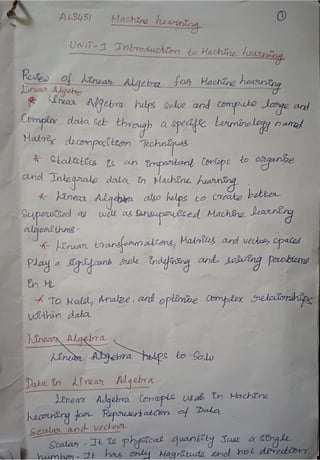 ①
AL3451 Machine learning
UNIT-1 Introduction to Machine learning
Review of Linear Algebra for Machine learning
Linear Algebra
* Linear Algebra helps solve and compute large and
Complex data set through a specific terminology named
Matrix decomposition Techniques
* Statistics is an important concept to organize
and Integrate data in Machine learning
* Linear Algebra also helps to create better
Supervised as well as unsupervised Machine learning
algorithms.
* Linear transformations, Matrices and vector spaces
Play a significant role in defining and solving problems
in ML
* TO Model, Analze, and optimize complex relationships
within data
Linear Algebra
Linear Algebra helps to Solv
Data in Linear Algebra
Linear Algebra Concepts used in Machine
learning for Representation of Data
Scalar and vector
Scalar - It is physical quantity Just a single
number. It has only Magnitude and not direction